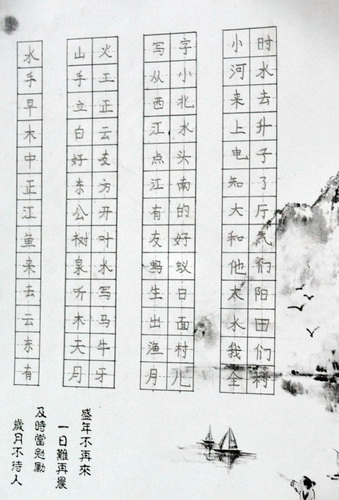 时水去升子了厅气们阳田们村
小河来上电知大和他太水我全
字小北水头南的好蚁白面村儿
写从西江点江有友蚂生出渔月
火王正云友方开叶水写马牛牙
山手立白好东公树泉听木天月
水手早木中正江鱼来去云东有
盛年不再來
一日難再晨
及時當勉勵
歲月不待人